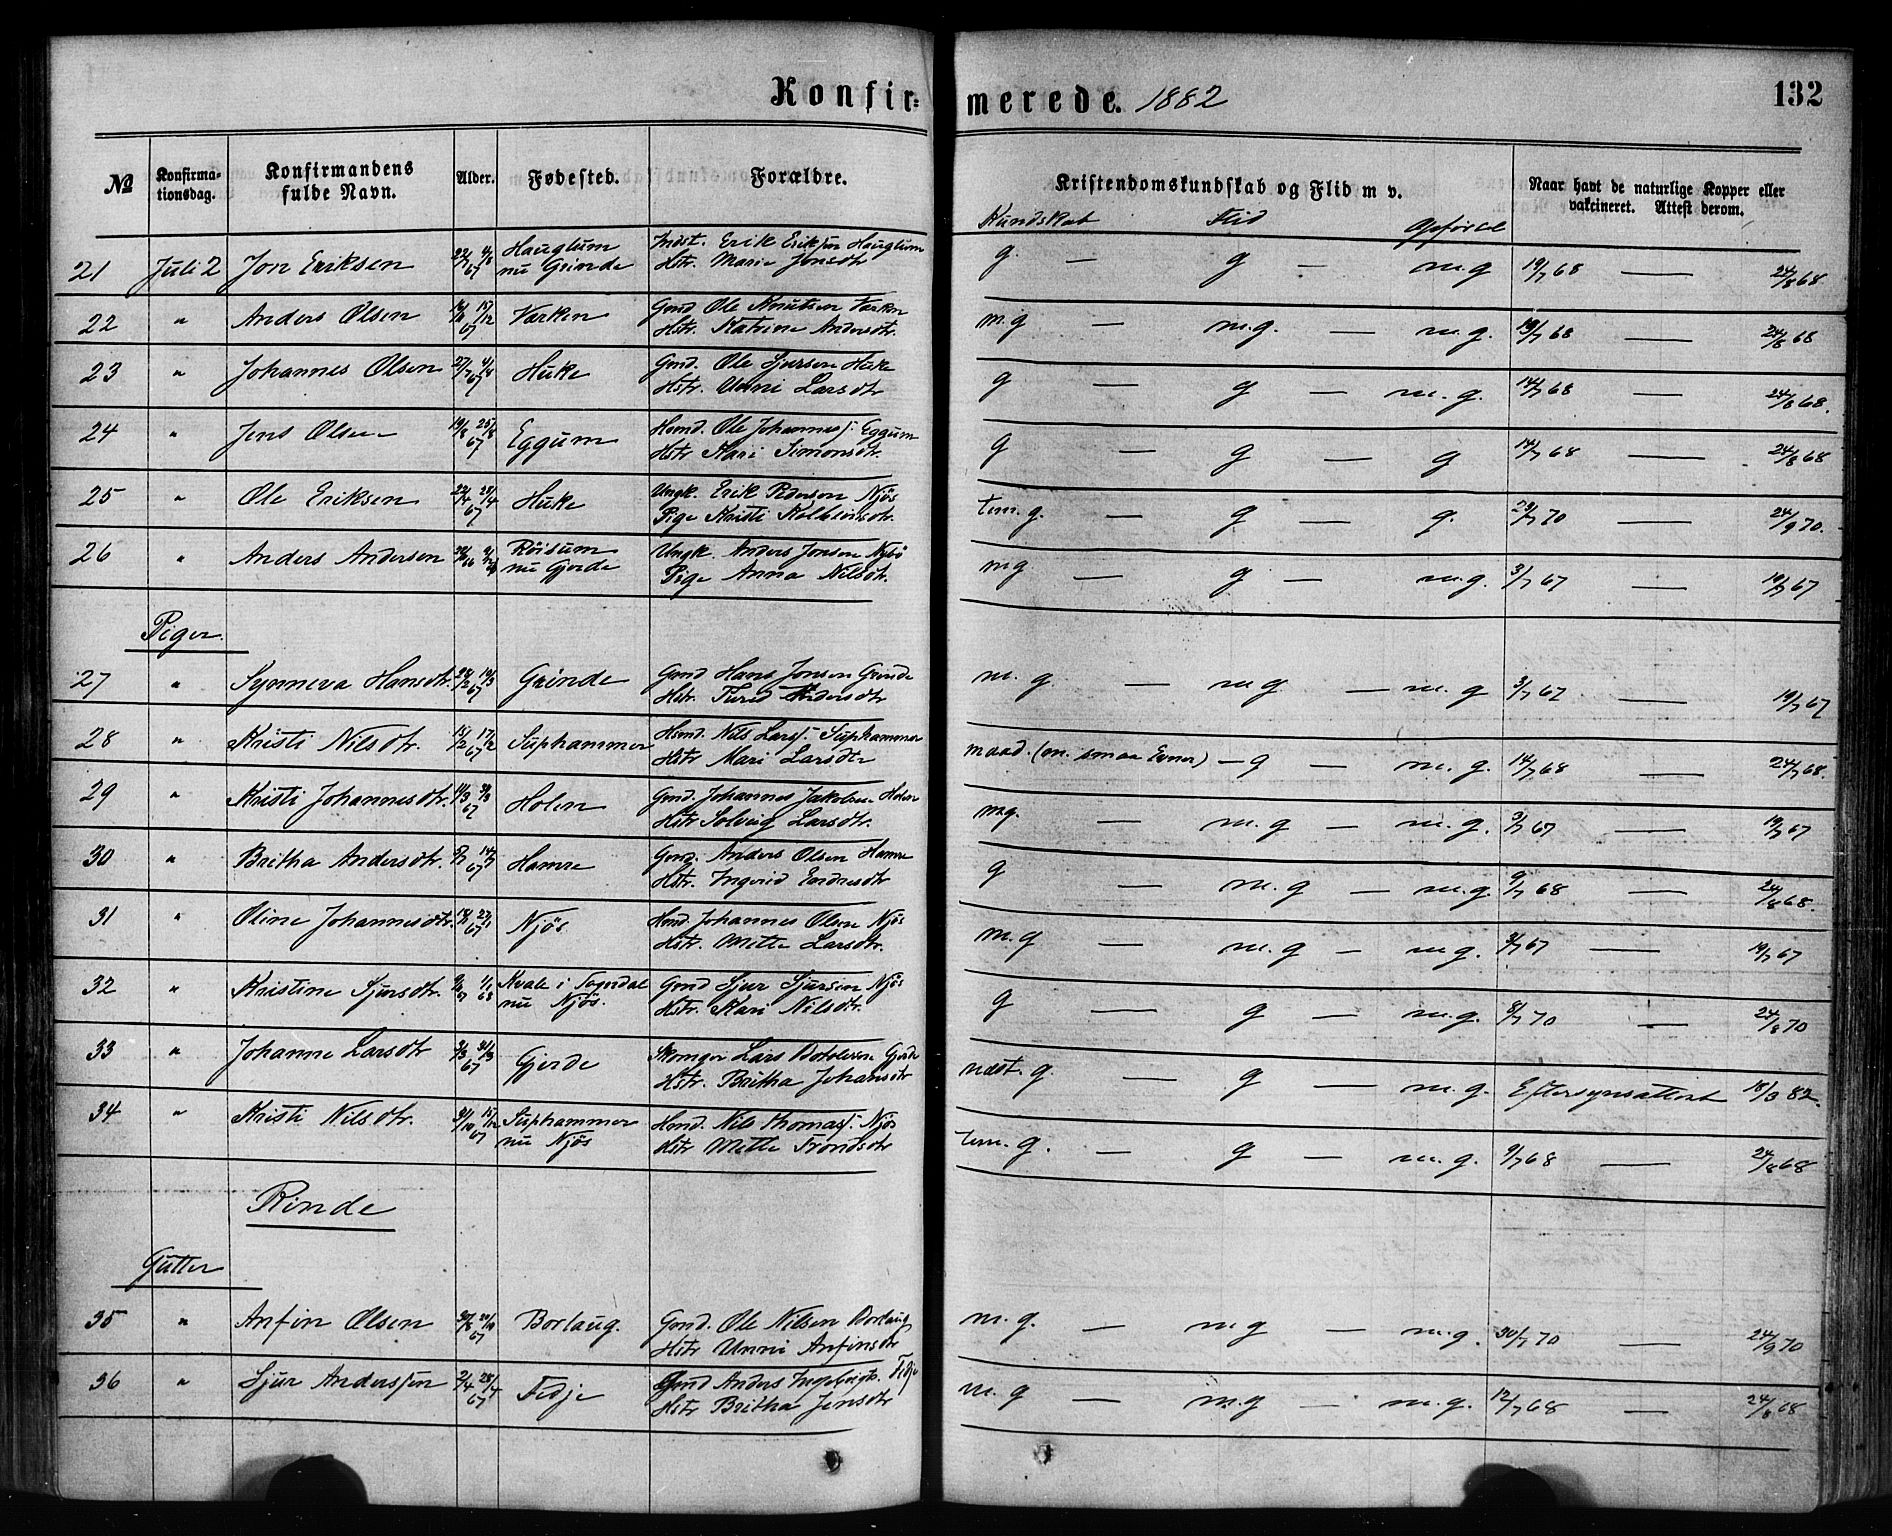 Konfirmerede. 1882
132
№ Konfirmationsdag. Konfirmandens fulde Navn. Alder. Fødested. Forældre. Kristendomskundskab og Flid m v. Naar havt de naturlige Kopper eller vakcineret. Attest derom.
Kundskab Flid Opførsel
21 Juli 2 Jon Eriksen 22/7 67 Hauglum nu Grinde Indst. Erik Eriksen Hauglum Hstr. Marie Jonsdtr g. — g — m.g 19/7 68 — 24/8 68.
22 " Anders Olsen 67 Varken Gmd Ole Knutsen Varken Hstr. Katrine Andersdtr. m.g — m.g. — m.g. 19/7 68 — 24/8 68
23 " Johannes Olsen 27/7 67 Huke Gmd. Ole Sjursen Huke Hstr. Unni Larsdtr g — g — m.g. 14/7 68 — 24/8 68.
24 " Jens Olsen 19/8 25/8 67 Eggum Hsmd. Ole Johanness. Eggum Hstr Kari Simonsdtr. g — g — g 14/7 68 — 24/8 68
25 " Ole Eriksen 22/4 28/4 67 Huke Ungk. Erik Pedersen Njøs Pige Kristi Kolbeinsdtr. tem. g. — g — g. 29/7 70 — 24/9 70.
26 " Anders Andersen Røisum nu Gjerde Ungk. Anders Jonsen Nybø Pige Anna Nilsdtr. mg — g — m.g. 3/7 67 — 19/7 67
Piger.
27 " Synneva Hansdtr. 67 Grinde Gmd Hans Jonsen Grinde Hstr. Turid Andersdtr m.g. — mg — m.g 3/7 67 — 19/7 67
28 " Kristi Nilsdtr. 15/2 67 Suphammer Hsmd. Nils Larss. Suphammer Hstr Mari Larsdtr maad. (m. smaa Evner) — g — m.g. 14/7 68 — 24/7 68.
29 " Kristi Johannesdtr. 67 Holen Gmd. Johannes Jakobsen Holen Hstr Solveig Larsdtr. mg. — m.g — m.g. 3/7 67 — 19/7 67
30 " Britha Andersdtr. 67 Hamre Gmd. Anders Olsen Hamre Hstr. Ingerid Endresdtr g — m.g — m.g. 9/7 68 — 24/8 68.
31 " Oline Johannesdtr. 67 Njøs Hsmd. Johannes Olsen Njøs Hstr. Mette Larsdtr. m.g — m.g — m.g. 3/7 67 — 19/7 67
32 " Kristine Sjursdtr. 1/1 68 Kvale i Sogndal nu Njøs. Gmd Sjur Sjursen Njøs Hstr. Kari Nilsdtr. g — g — m.g. 8/7 70 — 24/8 70
33 " Johanne Larsdtr 67 Gjerde Skomger Lars Botolvsen Gjerde Hstr. Britha Johansdtr ndst. g. — g — m.g. Eftersynsattest 18/3 82.
34 " Kristi Nilsdtr. 67 Suphammer nu Njøs Hsmd. Nils Thomass. Njøs Hstr Mette Trondsdtr tem. g. — g — m.g. 9/7 68 — 24/8 68
Rinde
Gutter
35 " Anfin Olsen 67 Borlaug. Gmd. Ole Nilsen Borlaug Hstr Unni Anfinsdtr m.g. — mg — m.g. 30/7 70 — 24/9 70
36 " Sjur Anderssen 2/4 28/4 67 Fedje Gmd Anders Ingebrigts. Fedje Hstr Britha Jensdtr m.g — m.g — m.g. 12/7 68 — 24/8 68